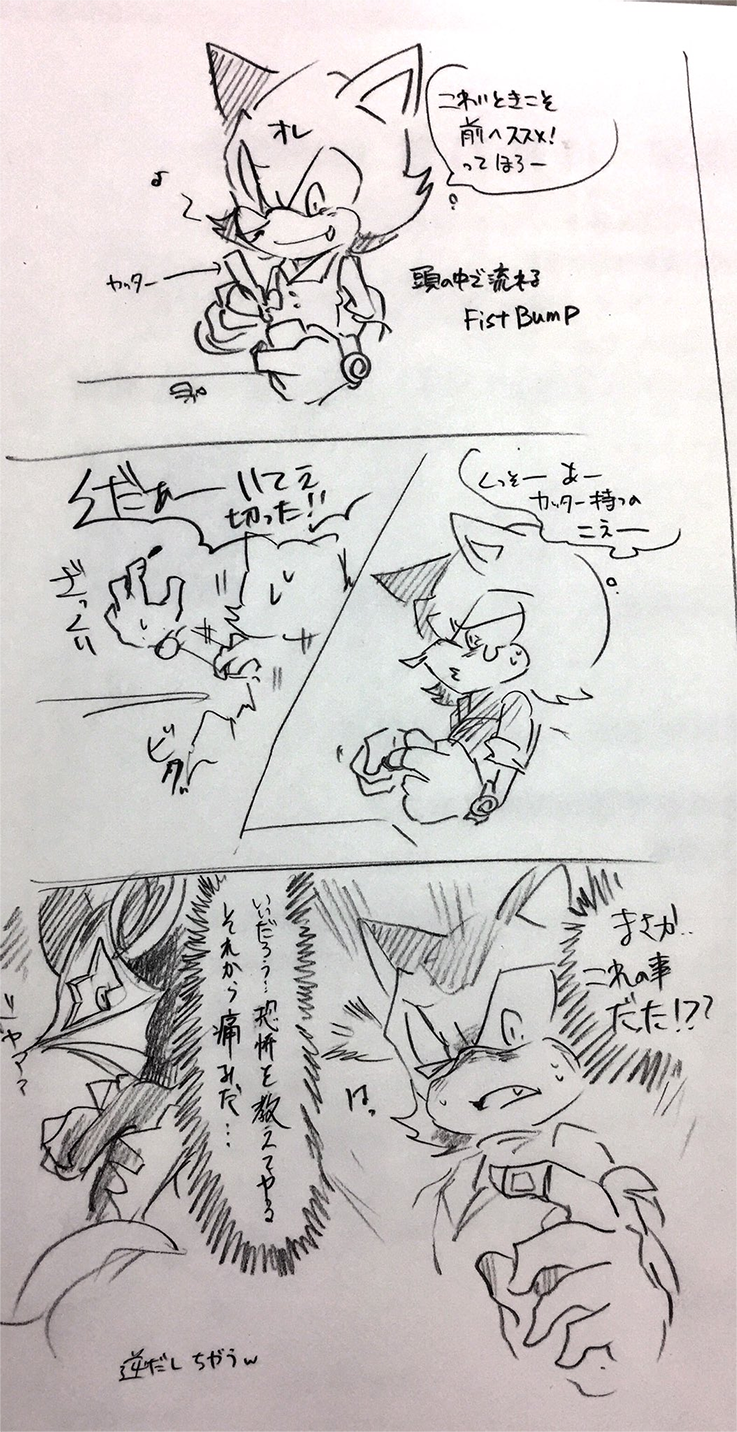 こわいときこそ
前へススメ!
ってほろー
オレ
カッター
頭の中で流れる
Fist Bump
くっそー あー
カッター持つの
こえー
ぐだぁー いてえ
切った!!
ざっくり
まさか..
これの事
だた!??
はっ
いいだろう…恐怖を教えてやる
それから痛みだ…
逆だしちがうw